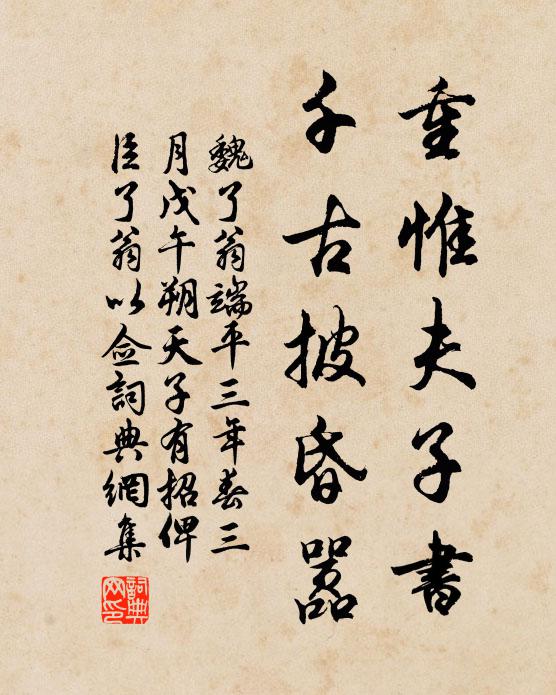 重惟夫子書
千古披昏嚣
魏了翁端平三年春三
月戊午朔天子有招俾
臣了翁以佥詞典網集
詞典网印